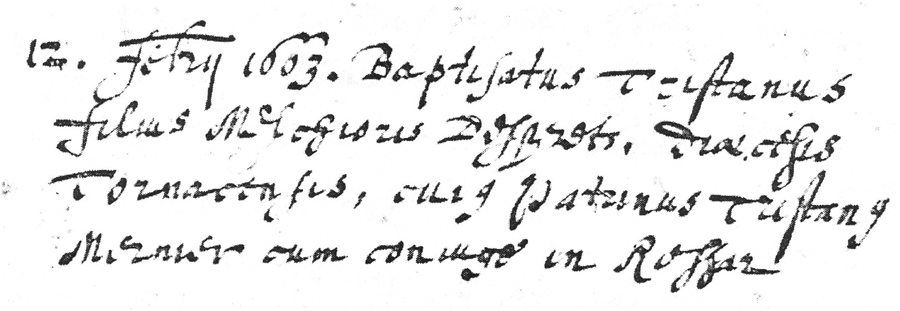 12. Febrij 1603. Baptisatus Tristanus
filius Melchioris Desspretz, diœcesis
Tornacensis, cuius Patrinus Tristanus
Mernier cum coniuge in